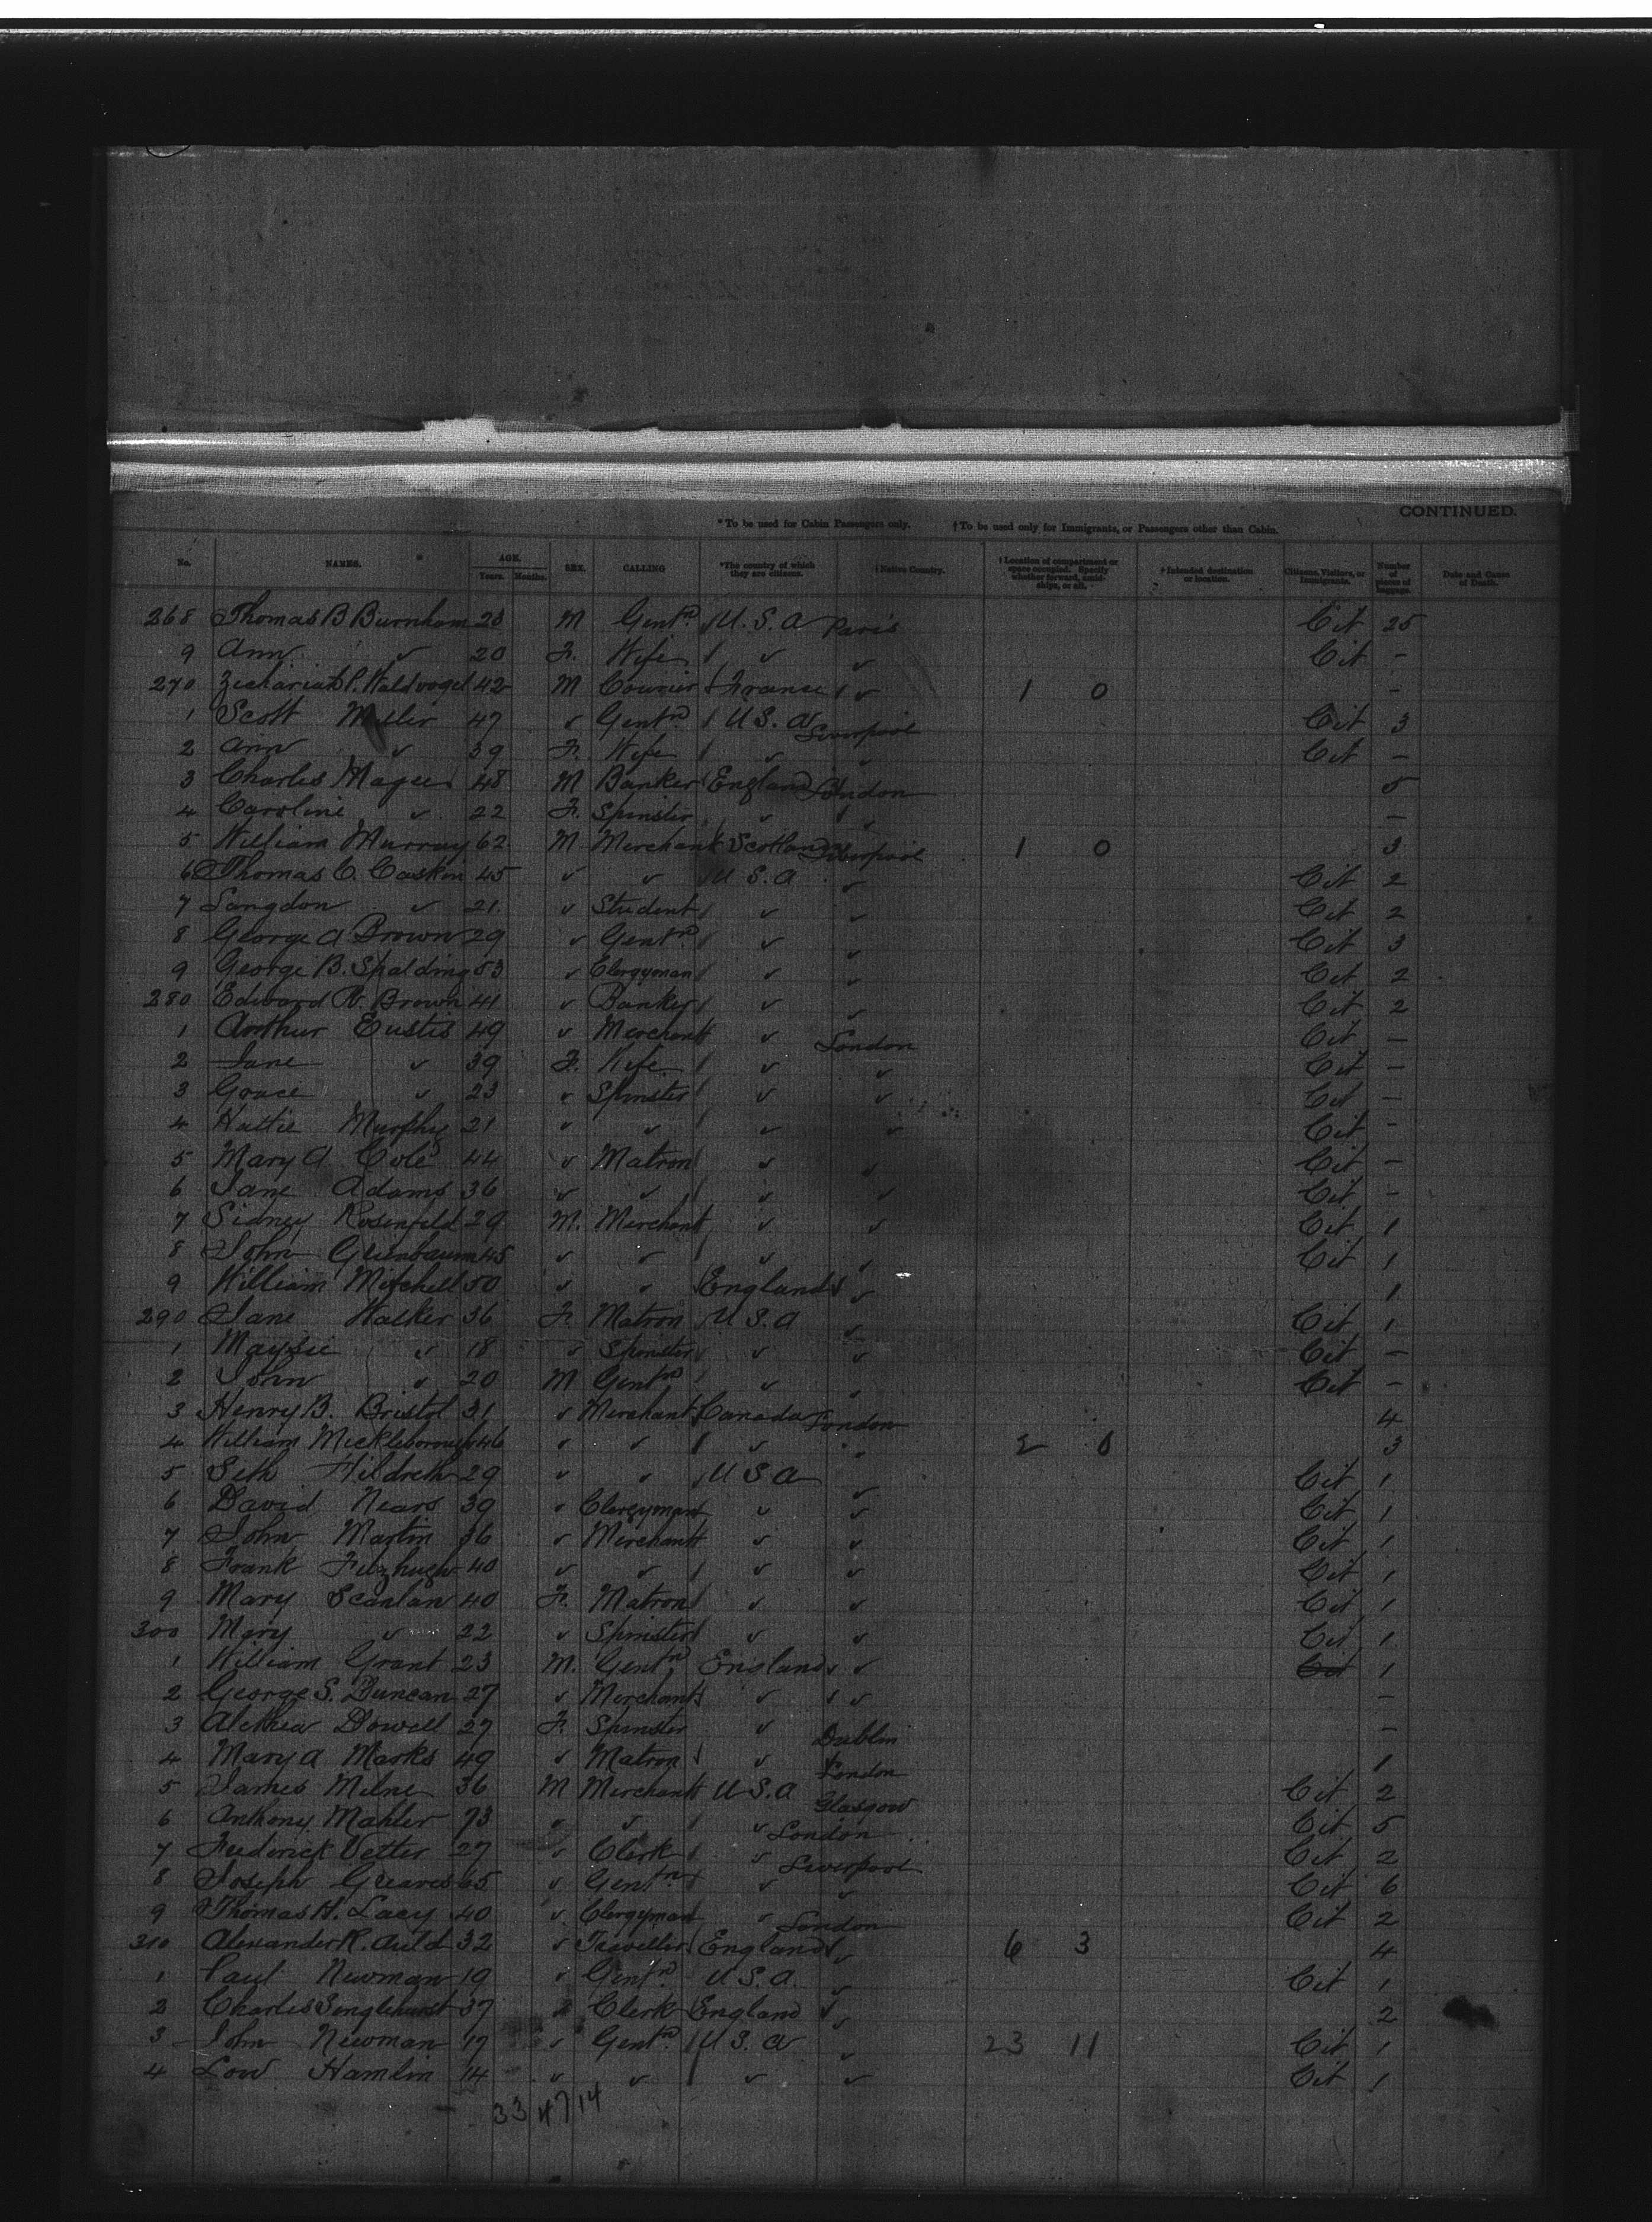 CONTINUED.
*To be used for Cabin Passengers only. †To be used only for Immigrants, or Passengers other than Cabin.
No. NAMES. AGE. Years. Months. SEX. CALLING *The country of which they are citizens. †Native Country. †Location of compartment or space occupied. Specify whether forward, amidships, or aft. †Intended destination or location. Citizens, Visitors, or Immigrants. Number of pieces of luggage. Date and Cause of Death.
268 Thomas B Burnham 23 M Gentn U.S.A Paris Cit 25
9 Ann ✓ 20 F. Wife ✓ ✓ Cit -
270 Zechariah P. Waldvogel 42 M Courier France ✓ 1 0 -
1 Scott Miller 47 ✓ Gentn U.S.A Liverpool Cit 3
2 Ann ✓ 39 F. Wife ✓ ✓ Cit -
3 Charles Magee 48 M Banker England London 5
4 Caroline ✓ 22 F. Spinster ✓ ✓ -
5 William Murray 62 M Merchant Scotland Liverpool 1 0 3
6 Thomas C. Caskin 45 ✓ ✓ U.S.A ✓ Cit 2
7 Langdon ✓ 21 ✓ Student ✓ ✓ Cit 2
8 George A Brown 29 ✓ Gentn ✓ ✓ Cit 3
9 George B. Spalding 53 ✓ Clergyman ✓ ✓ Cit 2
280 Edward R. Brown 41 ✓ Banker ✓ ✓ Cit 2
1 Arthur Eustis 49 ✓ Merchant ✓ London Cit -
2 Jane ✓ 39 F. Wife ✓ ✓ Cit -
3 Grace ✓ 23 ✓ Spinster ✓ ✓ Cit -
4 Hattie Murphy 21 ✓ ✓ ✓ ✓ Cit -
5 Mary A Cole 44 ✓ Matron ✓ ✓ Cit -
6 Jane Adams 36 ✓ ✓ ✓ ✓ Cit -
7 Sidney Rosenfeld 29 M. Merchant ✓ ✓ Cit 1
8 John Greenbaum 45 ✓ ✓ ✓ ✓ Cit 1
9 William Mitchell 50 ✓ ✓ England ✓ 1
290 Jane Walker 36 F. Matron U.S.A ✓ Cit 1
1 Maysie ✓ 18 ✓ Spinster ✓ ✓ Cit -
2 John ✓ 20 M Gentn ✓ ✓ Cit -
3 Henry B. Bristol 31 ✓ Merchant Canada London 4
4 William Mickleborough 46 ✓ ✓ ✓ ✓ 2 0 3
5 Seth Hildreth 29 ✓ ✓ U.S.A ✓ Cit 1
6 David Nears 39 ✓ Clergyman ✓ ✓ Cit 1
7 John Martin 36 ✓ Merchant ✓ ✓ Cit 1
8 Frank Fitzhugh 40 ✓ ✓ ✓ ✓ Cit 1
9 Mary Scanlan 40 F. Matron ✓ ✓ Cit 1
300 Mary ✓ 22 ✓ Spinster ✓ ✓ Cit 1
1 William Grant 23 M. Gentn England ✓ Cit 1
2 George S. Duncan 27 ✓ Merchant ✓ ✓ -
3 Alethea Dowell 27 F. Spinster ✓ Dublin -
4 Mary A Marks 49 ✓ Matron ✓ London 1
5 James Milne 36 M Merchant U.S.A Glasgow Cit 2
6 Anthony Mahler 73 ✓ ✓ ✓ London Cit 5
7 Frederick Vetter 27 ✓ Clerk ✓ Liverpool Cit 2
8 Joseph Greaves 65 ✓ Gentn ✓ ✓ Cit 6
9 Thomas H. Lacy 40 ✓ Clergyman ✓ London Cit 2
310 Alexander R. Auld 32 ✓ Traveller England ✓ 6 3 4
1 Paul Newman 19 ✓ Gentn U.S.A. ✓ Cit 1
2 Charles 37 Clerk England ✓ 2
3 John Newman 17 ✓ Gentn U.S.A ✓ 23 11 Cit 1
4 Low Hamlin 14 ✓ ✓ ✓ ✓ Cit 1
33 47 14